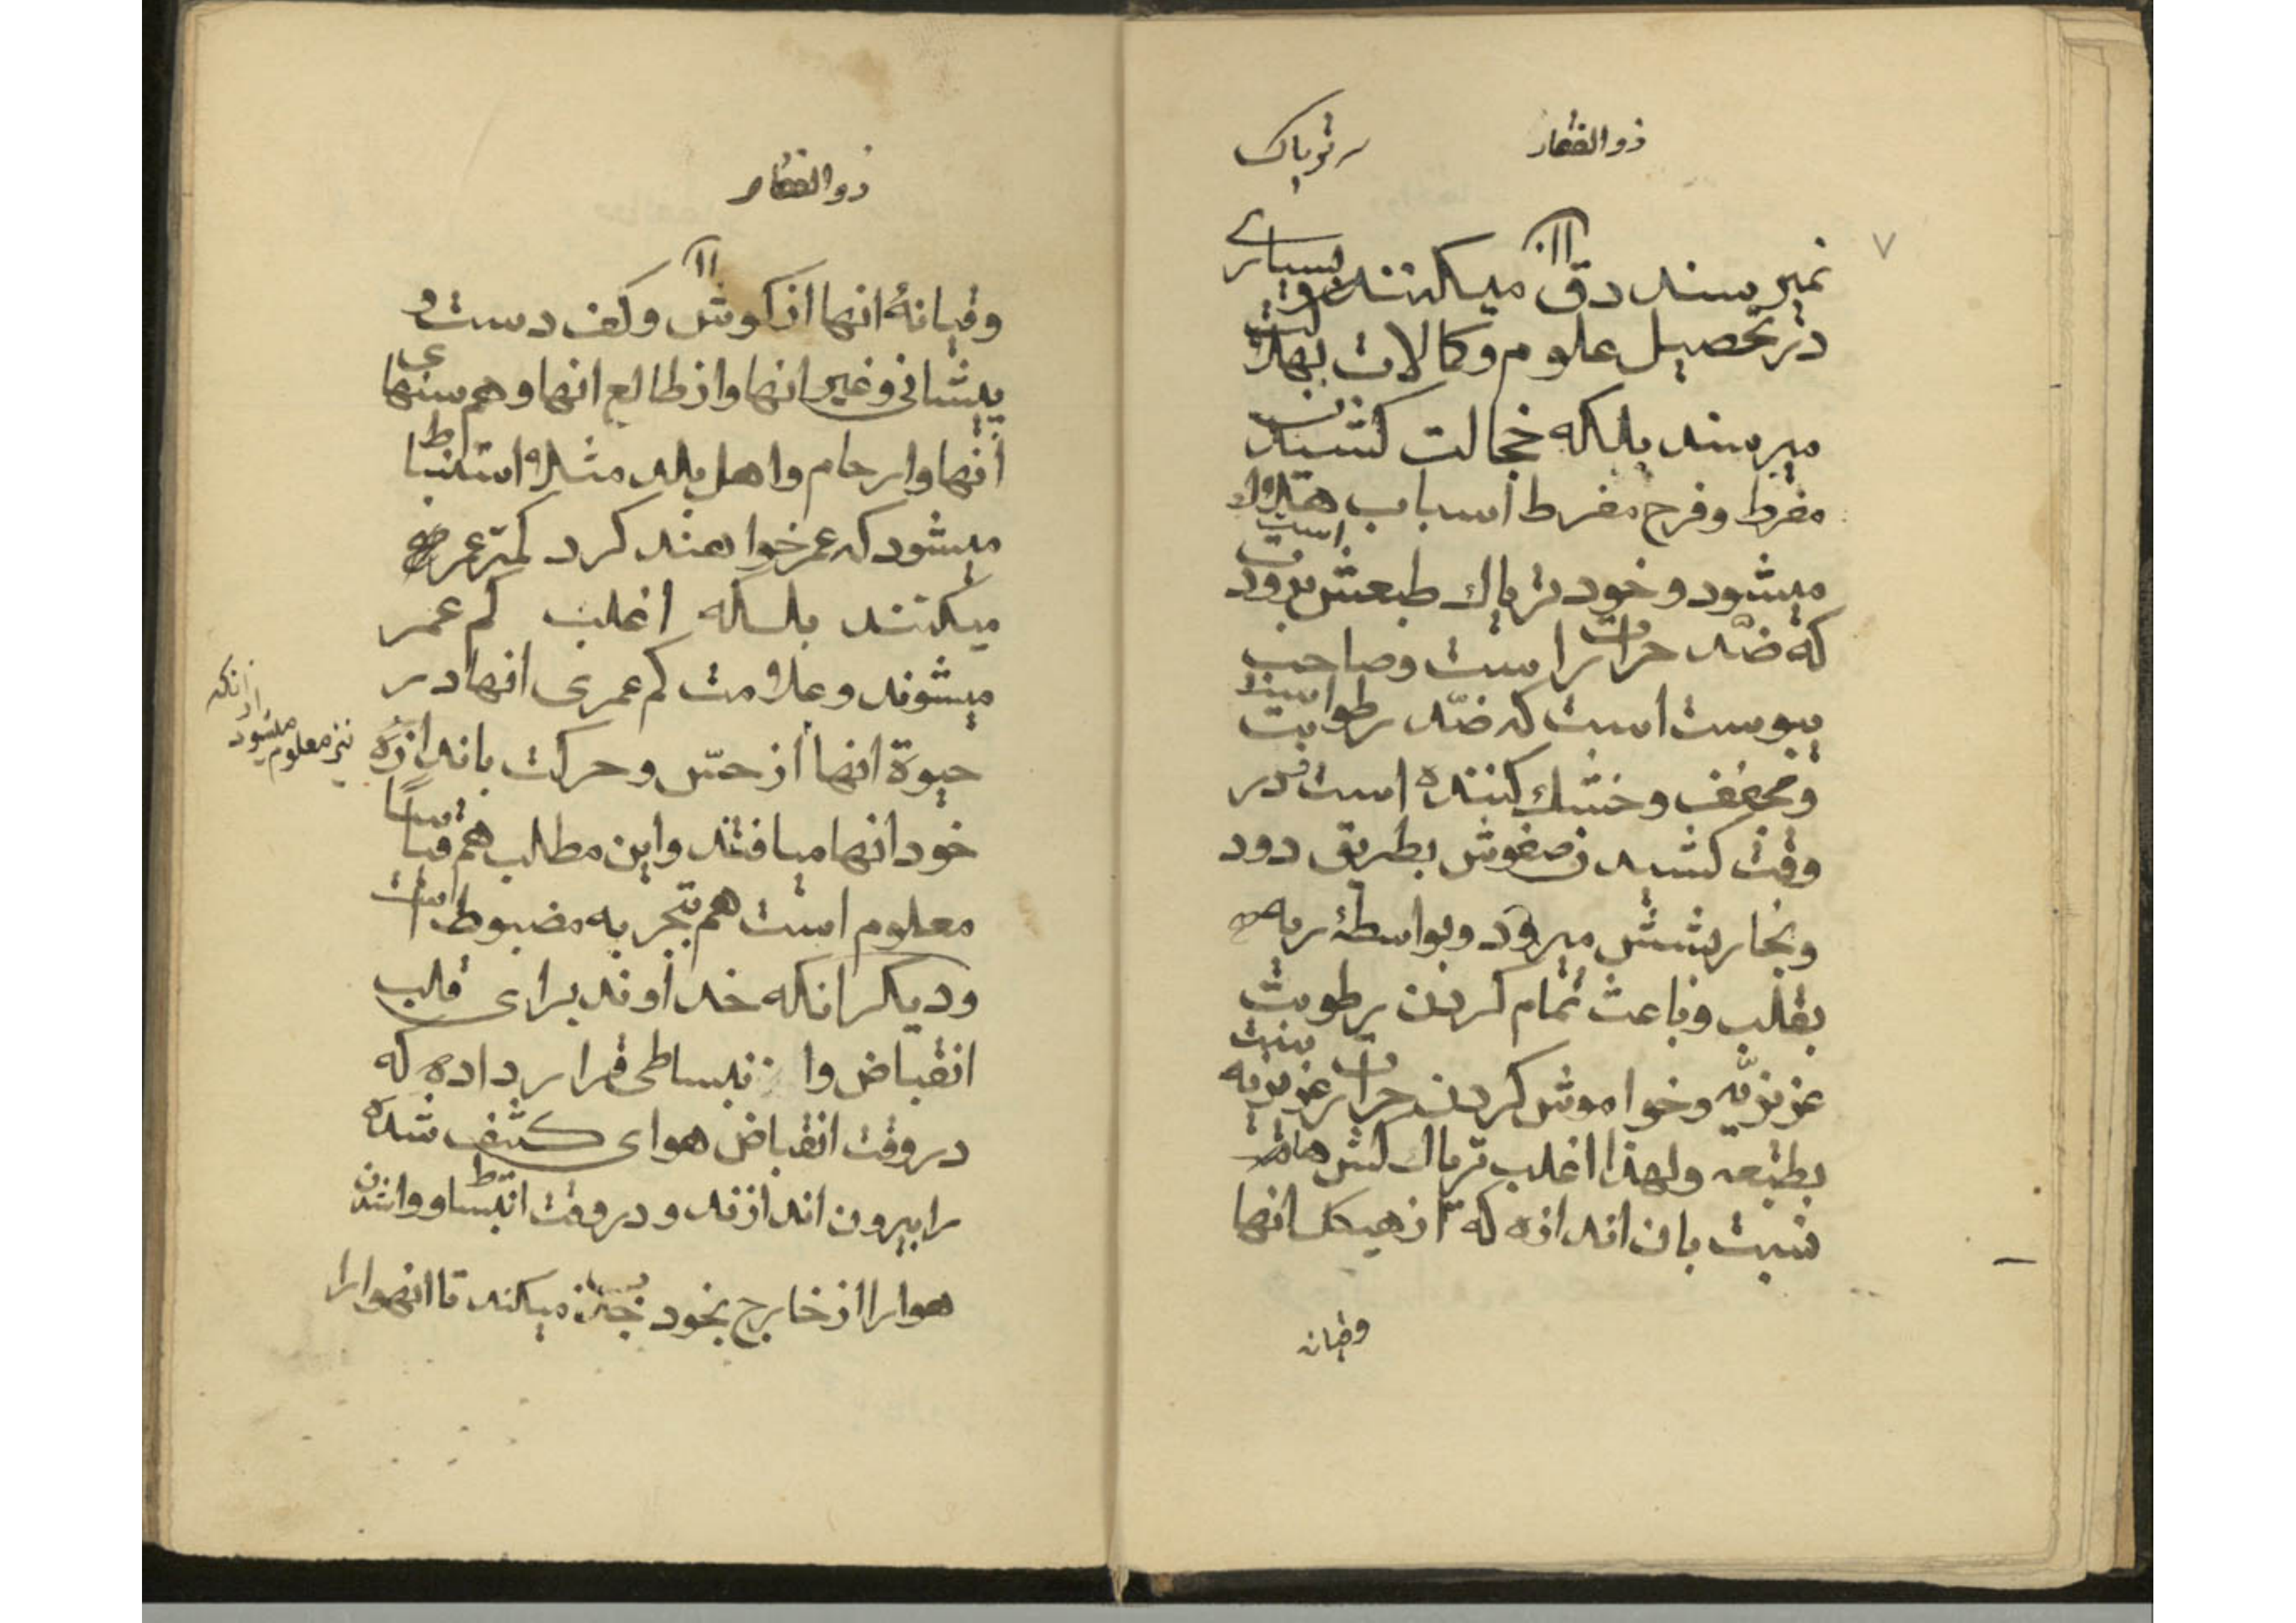 ذوالفقار
در تریاک
۷
نمیرسند دق میکنند و بسیاری
در تحصیل علوم و کمالات بهلاکت
میرسند بلکه خجالت کشیدن
مفرط و فرح مفرط اسباب هلاک
میشود و خود تریاک طبعش برودت است
که ضد حرارت است و صاحب
یبوست است که ضد رطوبت است
و مجفف و خشک کننده است و در
وقت کشیدن صفوش بطریق دود
و بخار بشش میرود و بواسطهٔ ریه
بقلب و باعث تمام کردن رطوبت
غریزیه و خواموش کردن حرارت غریزیه
بطبعه ولهذا اغلب تریاک کش ها
نسبت بان اندازه که از هیکل انها
وقیانه
ذوالفقار
وقیانهٔ انها از کوش و کف دست و
پیشانی و غیر انها و از طالع انها و هم سنهای
انها و ارحام و اهل بلد مثلا استنباط
میشود که عمر خواهند کرد کمتر عمر
میکنند بلکه اغلب کم عمر
میشوند و علامت کم عمری انها در
حیوة انها از حس و حرکت باندازه
نیز معلوم میشود
از انکه
خود انها میافتند و این مطلب هم قیاسا
معلوم است هم بتجربه مضبوط است
و دیکر انکه خداوند برای قلب
انقباض وا نبساطی قرار داده که
در وقت انقباض هوای کثیف شده
را بیرون اندازند و در وقت انبساط و واشدن
هوا را از خارج بخود جذب میکند تا انهوا را